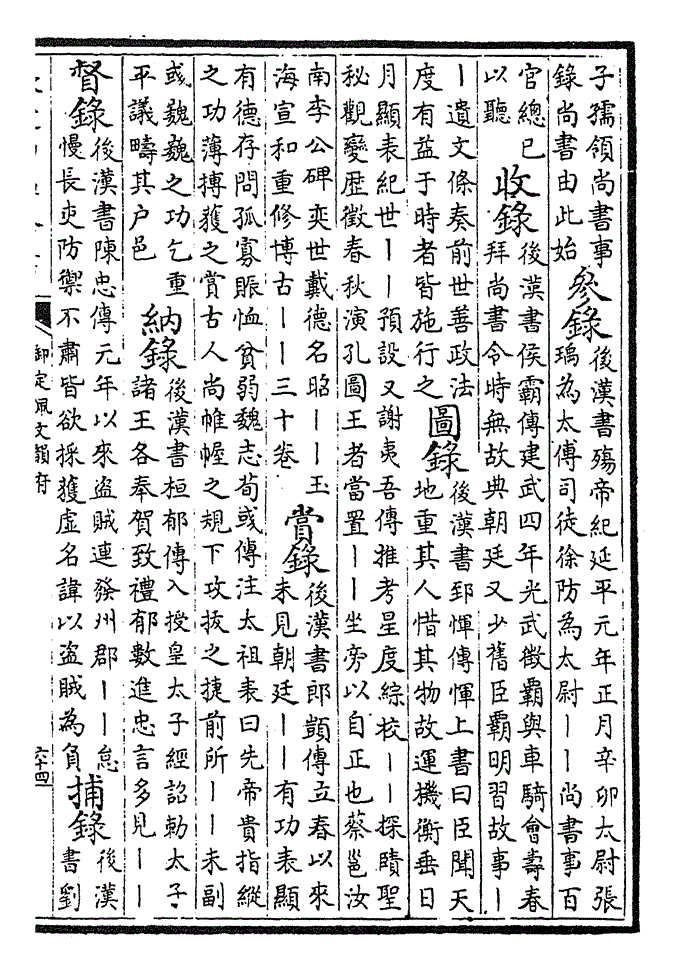 子孺領尚書事錄尚書由此始 參錄 後漢書殤帝紀延平元年正月辛卯太尉張瑀為太傅司徒徐防為太尉——尚書事百
官總已以聽 收錄 後漢書侯霸傳建武四年光武徵霸與車騎會壽春拜尚書令時無故典朝廷又少舊臣霸明習故事—
—遺文條奏前世善政法度有益于時者皆施行之 圖錄 後漢書郅惲傳惲上書曰臣聞天地重其人惜其物故運機衡垂日
月顯表紀世——預設又謝夷吾傳推考星度綜校——探賾聖秘觀變歴徵春秋演孔圖王者當置——坐旁以自正也蔡邕汝
南李公碑奕世戴德名昭——玉海宣和重修博古——三十卷 賞錄 後漢書郎顗傳立春以來未見朝廷——有功表顯
有德存問孤寡賑恤貧弱魏志荀彧傳注太祖表曰先帝貴指縱之功薄搏獲之賞古人尚帷幄之規下攻拔之捷前所——未副
彧巍巍之功乞重平議疇其户邑 納錄 後漢書桓郁傳入授皇太子經詔勅太子諸王各奉賀致禮郁數進忠言多見——
督錄 後漢書陳忠傳元年以來盜賊連發州郡——怠慢長吏防禦不肅皆欲採獲虛名諱以盜賊為負 捕錄 後漢書劉
御定佩文韻府